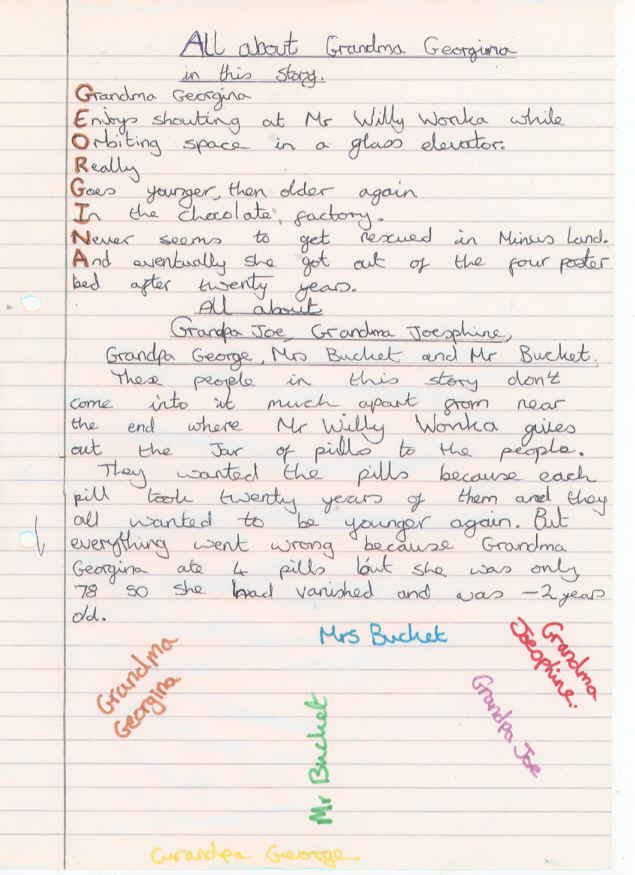 All about Grandma Georgina
in this story.
Grandma Georgina
Enjoys shouting at Mr Willy Wonka while
Orbiting space in a glass elevator.
Really
Goes younger, then older again
In the chocolate factory.
Never seems to get rescued in Minus Land.
And eventually she got out of the four poster
bed after twenty years.
All about
Grandpa Joe, Grandma Joesphine,
Grandpa George, Mrs Bucket and Mr Bucket.
These people in this story don't
come into it much apart from near
the end where Mr Willy Wonka gives
out the Jar of pills to the people.
They wanted the pills because each
pill took twenty years of them and they
all wanted to be younger again. But
everything went wrong because Grandma
Georgina ate 4 pills but she was only
78 so she had vanished and was -2 years
old.
Mrs Bucket
Grandma
Joesphine.
Grandma
Georgina
Grandpa Joe
Mr Bucket
Grandpa George.